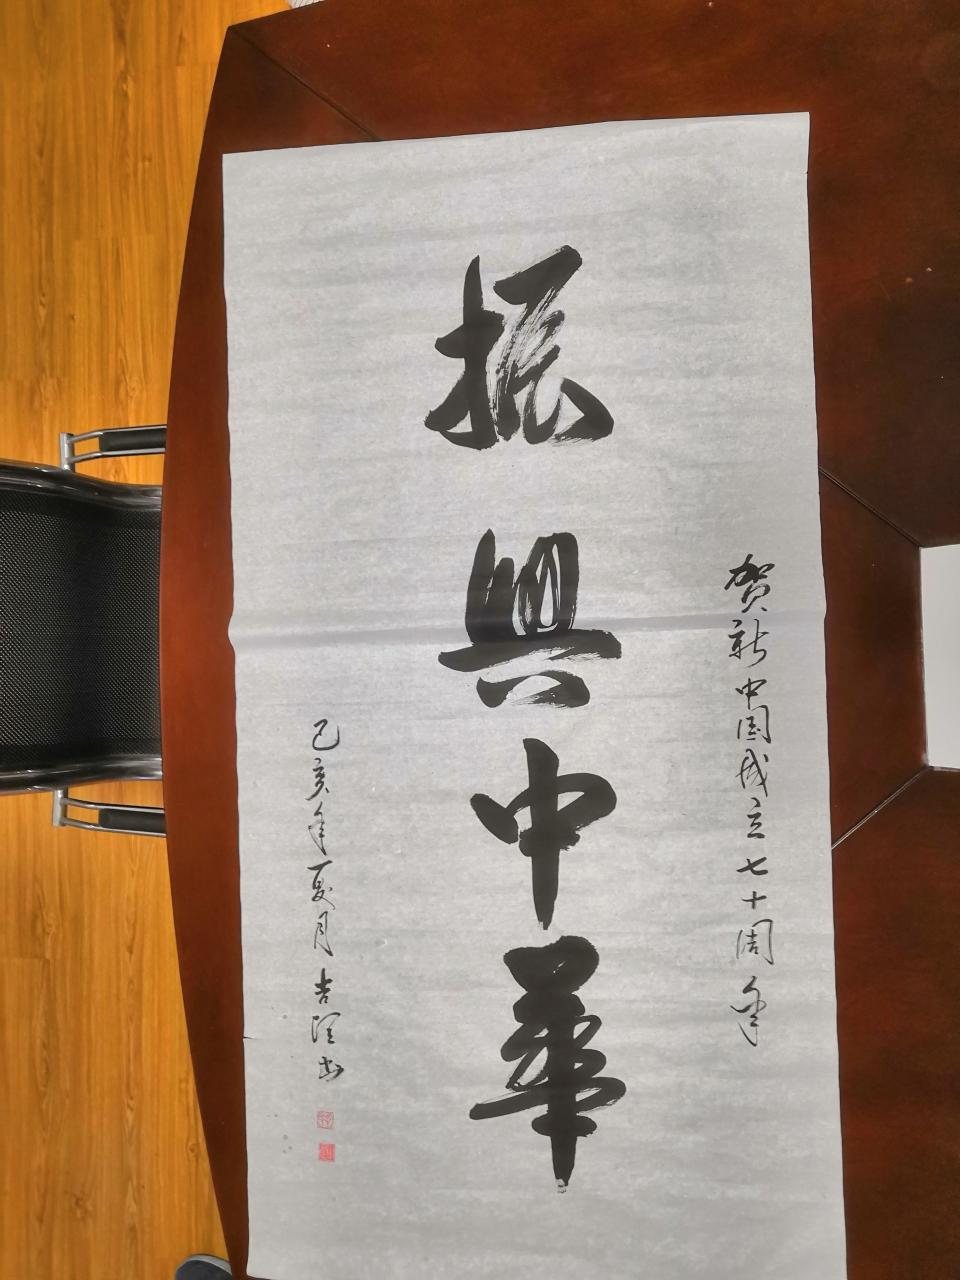 贺新中国成立七十周年
振興中華
己亥年夏月吉